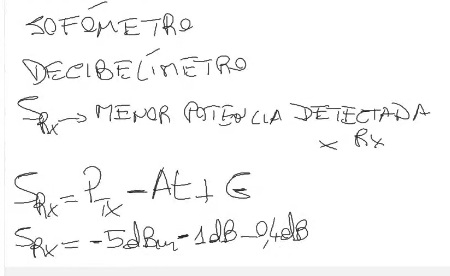 SOFÓMETRO
DECIBELÍMETRO
S_RX → MENOR POTENCIA DETECTADA
x RX
S_RX = P_TX - At + G
S_RX = -5dBm - 1dB - 0,4dB